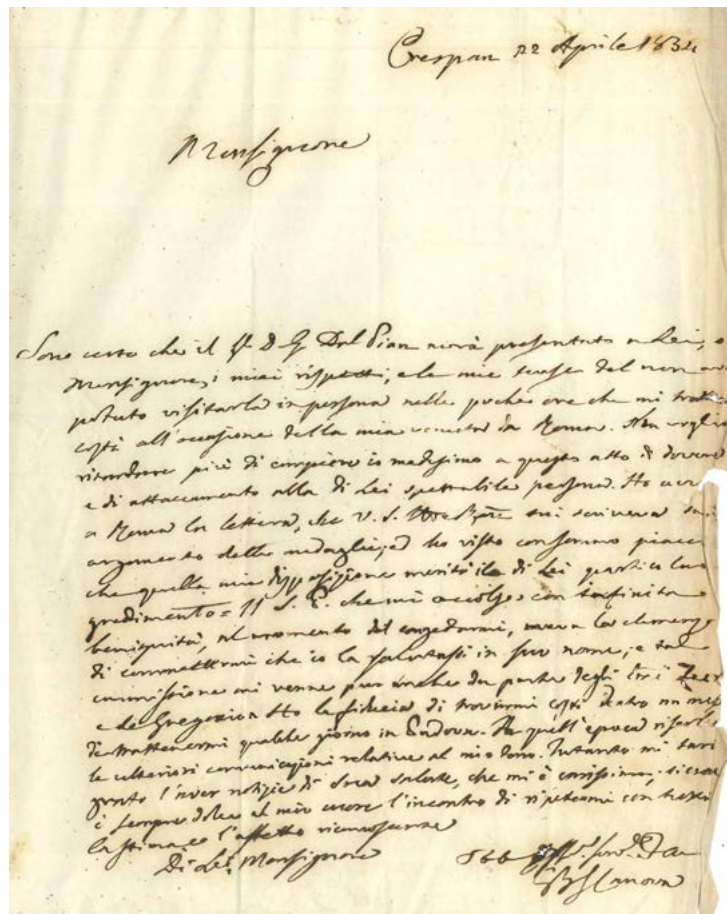 Crespan 22 Aprile 1834
Monsignore
Sono certo che il Sr D. G. Dal Pian avrà presentato a Lei, o
Monsignore, i miei rispetti, e le mie scuse del non aver
potuto visitarla in persona nelle poche ore che mi trattenni
costì all'occasione della mia venuta da Roma. Non voglio
ritardare più di compiere io medesimo a questo atto di dovere
e di attaccamento alla di Lei spettabile persona. Ho avu
a Roma la lettera, che V. S. mi scriveva su
argomento delle medaglie; ed ho visto con sommo piace
che quella mia disposizione meritò il di Lei particolare
gradimento = Il S. P. che mi accolse con infinita
benignità, al momento del congedarmi, aveva la clemenza
di commettermi che io la salutassi in suo nome; e tal
commissione mi venne pur anche da parte degli
e De Gregorio. Ho la fiducia di trovarmi costì dentro un mese
da trattenermi qualche giorno in Padova. A quell'epoca
le ulteriori comunicazioni relative al mio dono. Intanto mi sarà
grato l'aver notizie di sua salute, che mi è carissima, siccome
è sempre dolce al mio cuore l'incontro di ripetermi con tutta
la stima, e l'affetto riconoscente
Di Lei, Monsignore
Canova